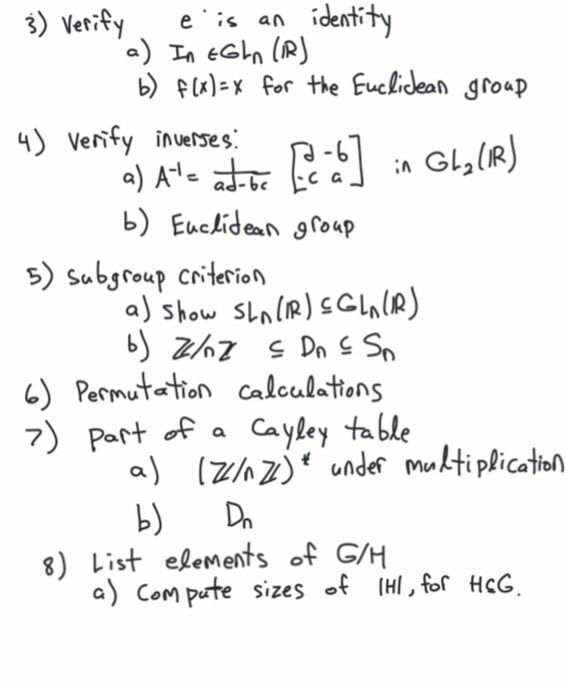 3) Verify e is an identity
a) In ∈ GLn (ℝ)
b) f(x)=x for the Euclidean group
4) Verify inverses:
a) A⁻¹ = 1/(ad-bc) [d -b; -c a] in GL₂(ℝ)
b) Euclidean group
5) subgroup criterion
a) show SLn(ℝ) ⊆ GLn(ℝ)
b) ℤ/nℤ ⊆ Dn ⊆ Sn
6) Permutation calculations
7) part of a Cayley table
a) (ℤ/nℤ)* under multiplication
b) Dn
8) List elements of G/H
a) Compute sizes of |H|, for H⊆G.